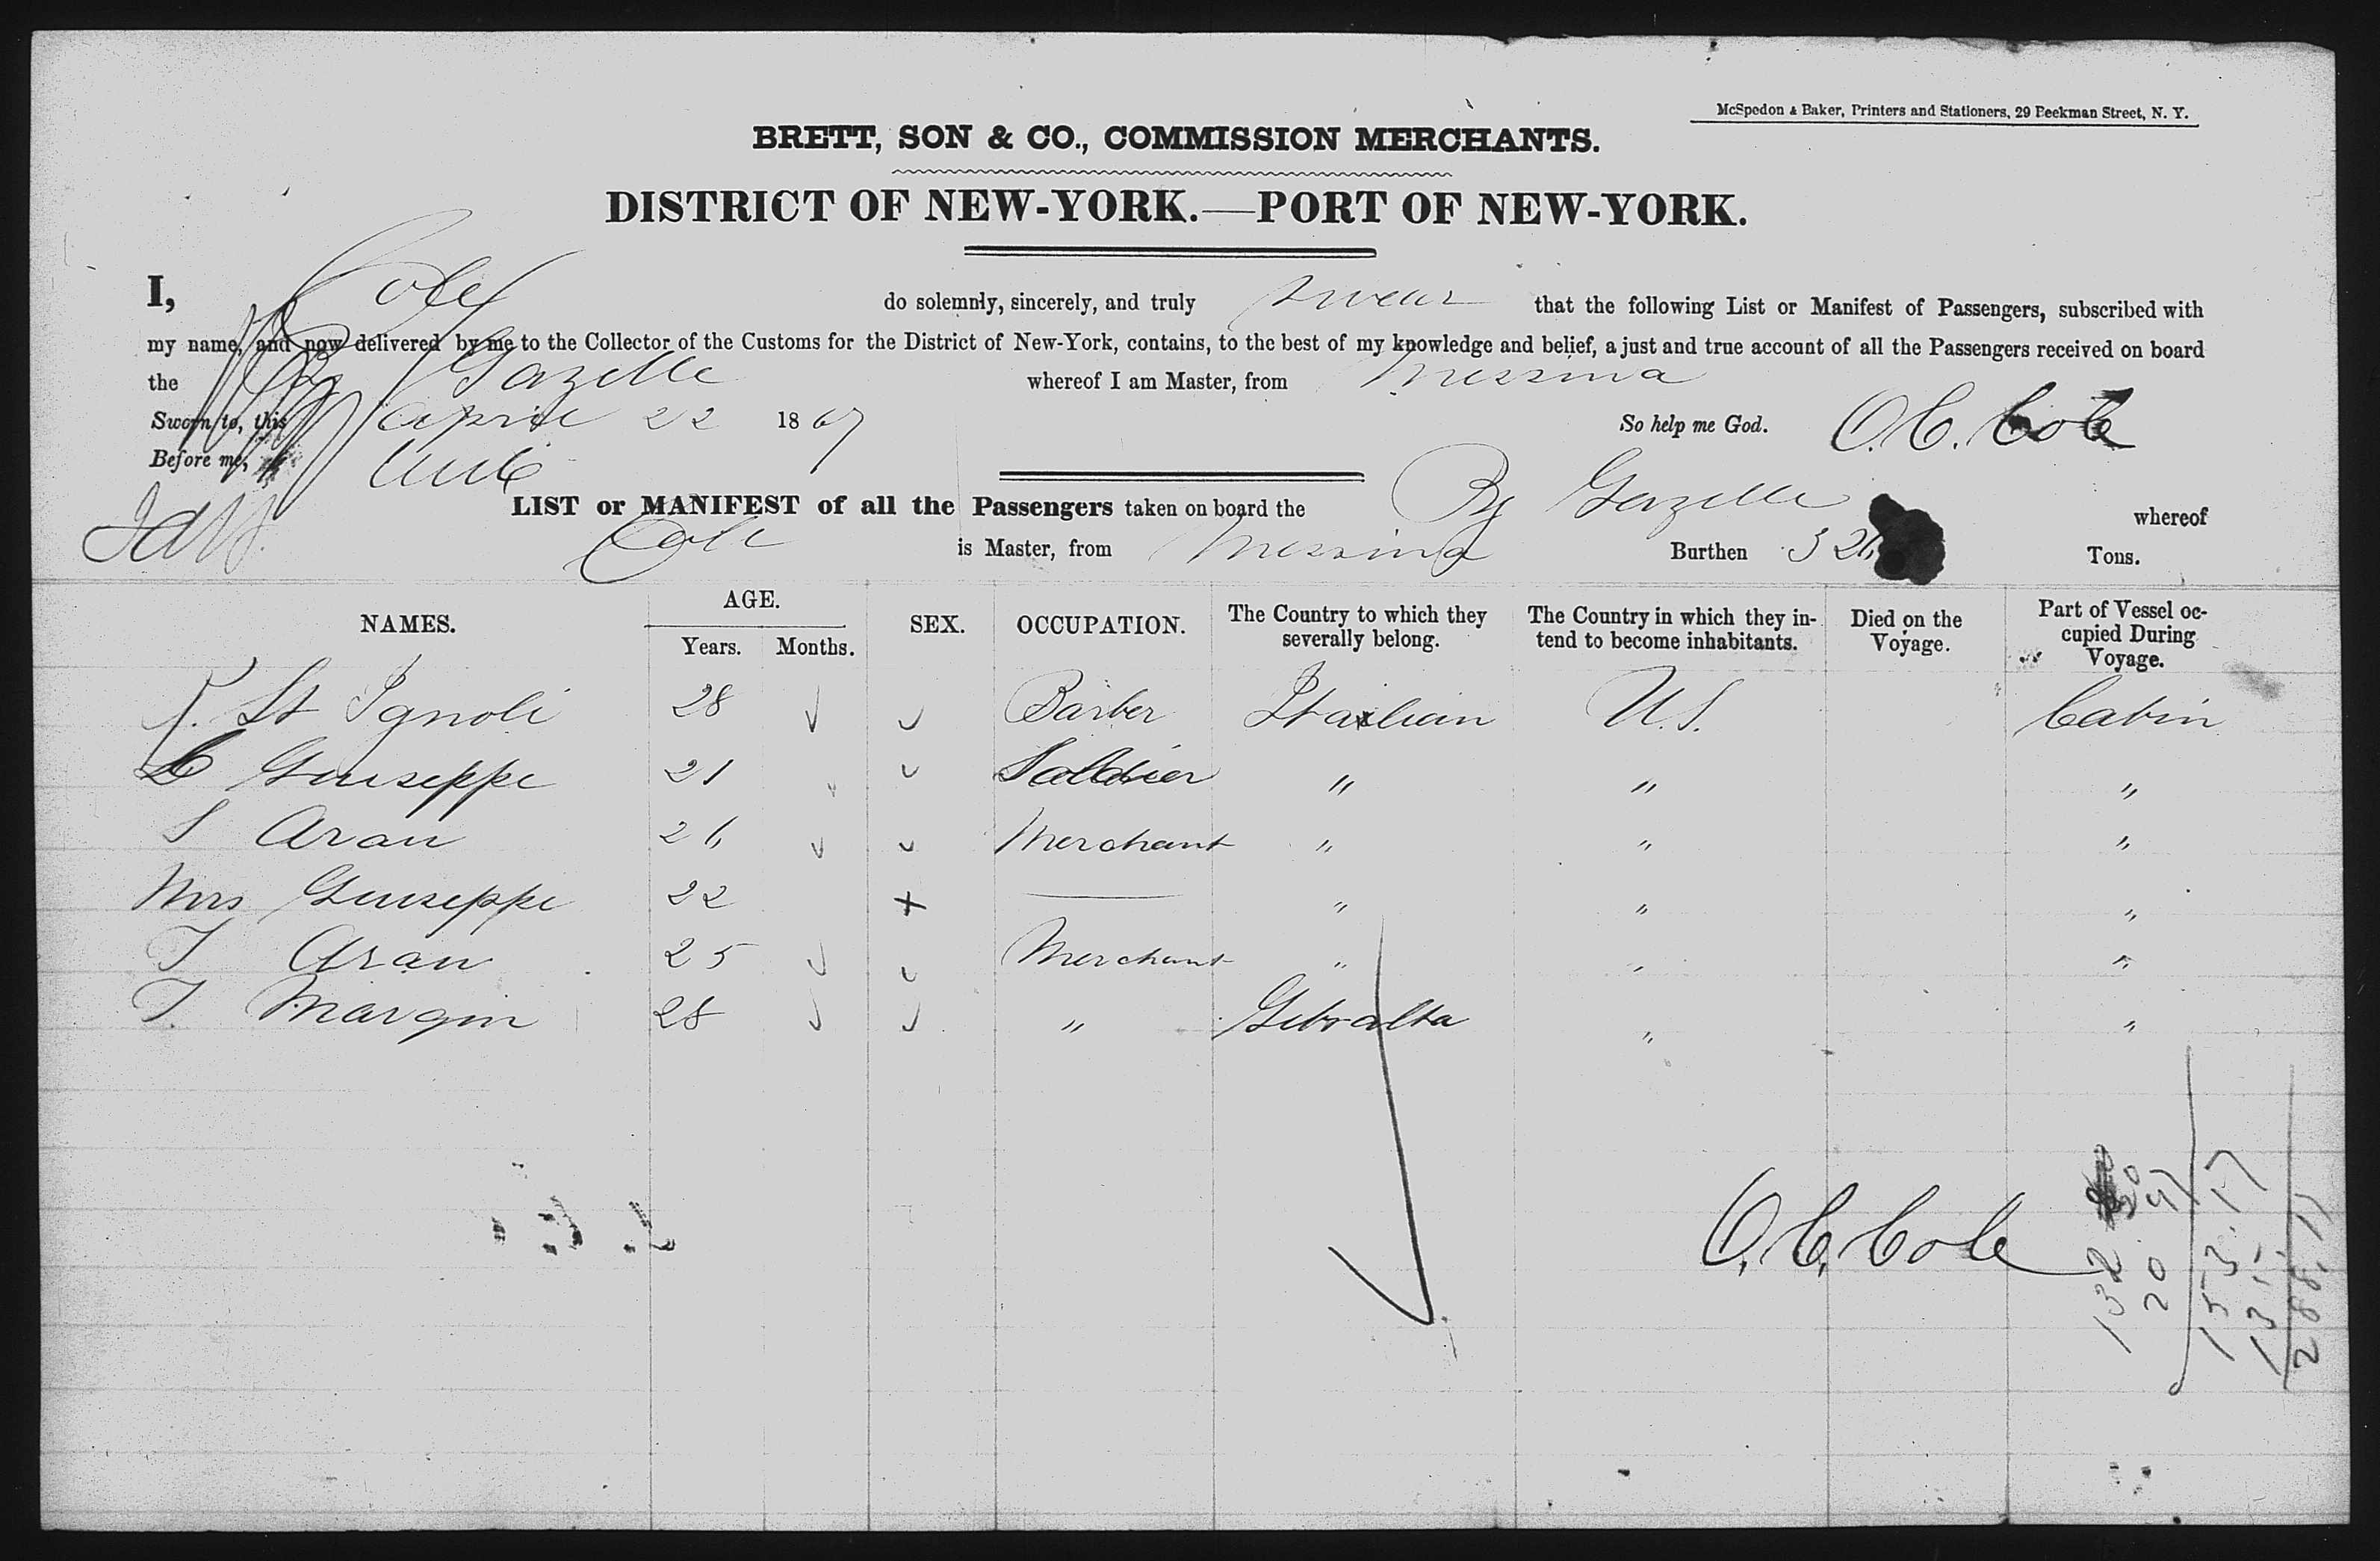 McSpedon & Baker, Printers and Stationers, 29 Beekman Street, N. Y.
BRETT, SON & CO., COMMISSION MERCHANTS.
DISTRICT OF NEW-YORK.—PORT OF NEW-YORK.
I, Cole do solemnly, sincerely, and truly swear that the following List or Manifest of Passengers, subscribed with
my name, and now delivered by me to the Collector of the Customs for the District of New-York, contains, to the best of my knowledge and belief, a just and true account of all the Passengers received on board
the Bg Gazelle whereof I am Master, from Messina
Sworn to, this April 22 1867 So help me God. O. C. Cole
Before me,
LIST or MANIFEST of all the Passengers taken on board the Bg Gazelle whereof
Cole is Master, from Messina Burthen 326 Tons.
NAMES. AGE. Years. Months. SEX. OCCUPATION. The Country to which they severally belong. The Country in which they intend to become inhabitants. Died on the Voyage. Part of Vessel occupied During Voyage.
St Ignoli 28 Barber Itailian U.S. Cabin
Guiseppe 21 Soldier " " "
S Aran 26 Merchant " " "
Mrs Guiseppe 22 — " " "
T Aran 25 Merchant " " "
T. Margin 28 " Gibralta " "
O. C. Cole
153.17
135.
288.17